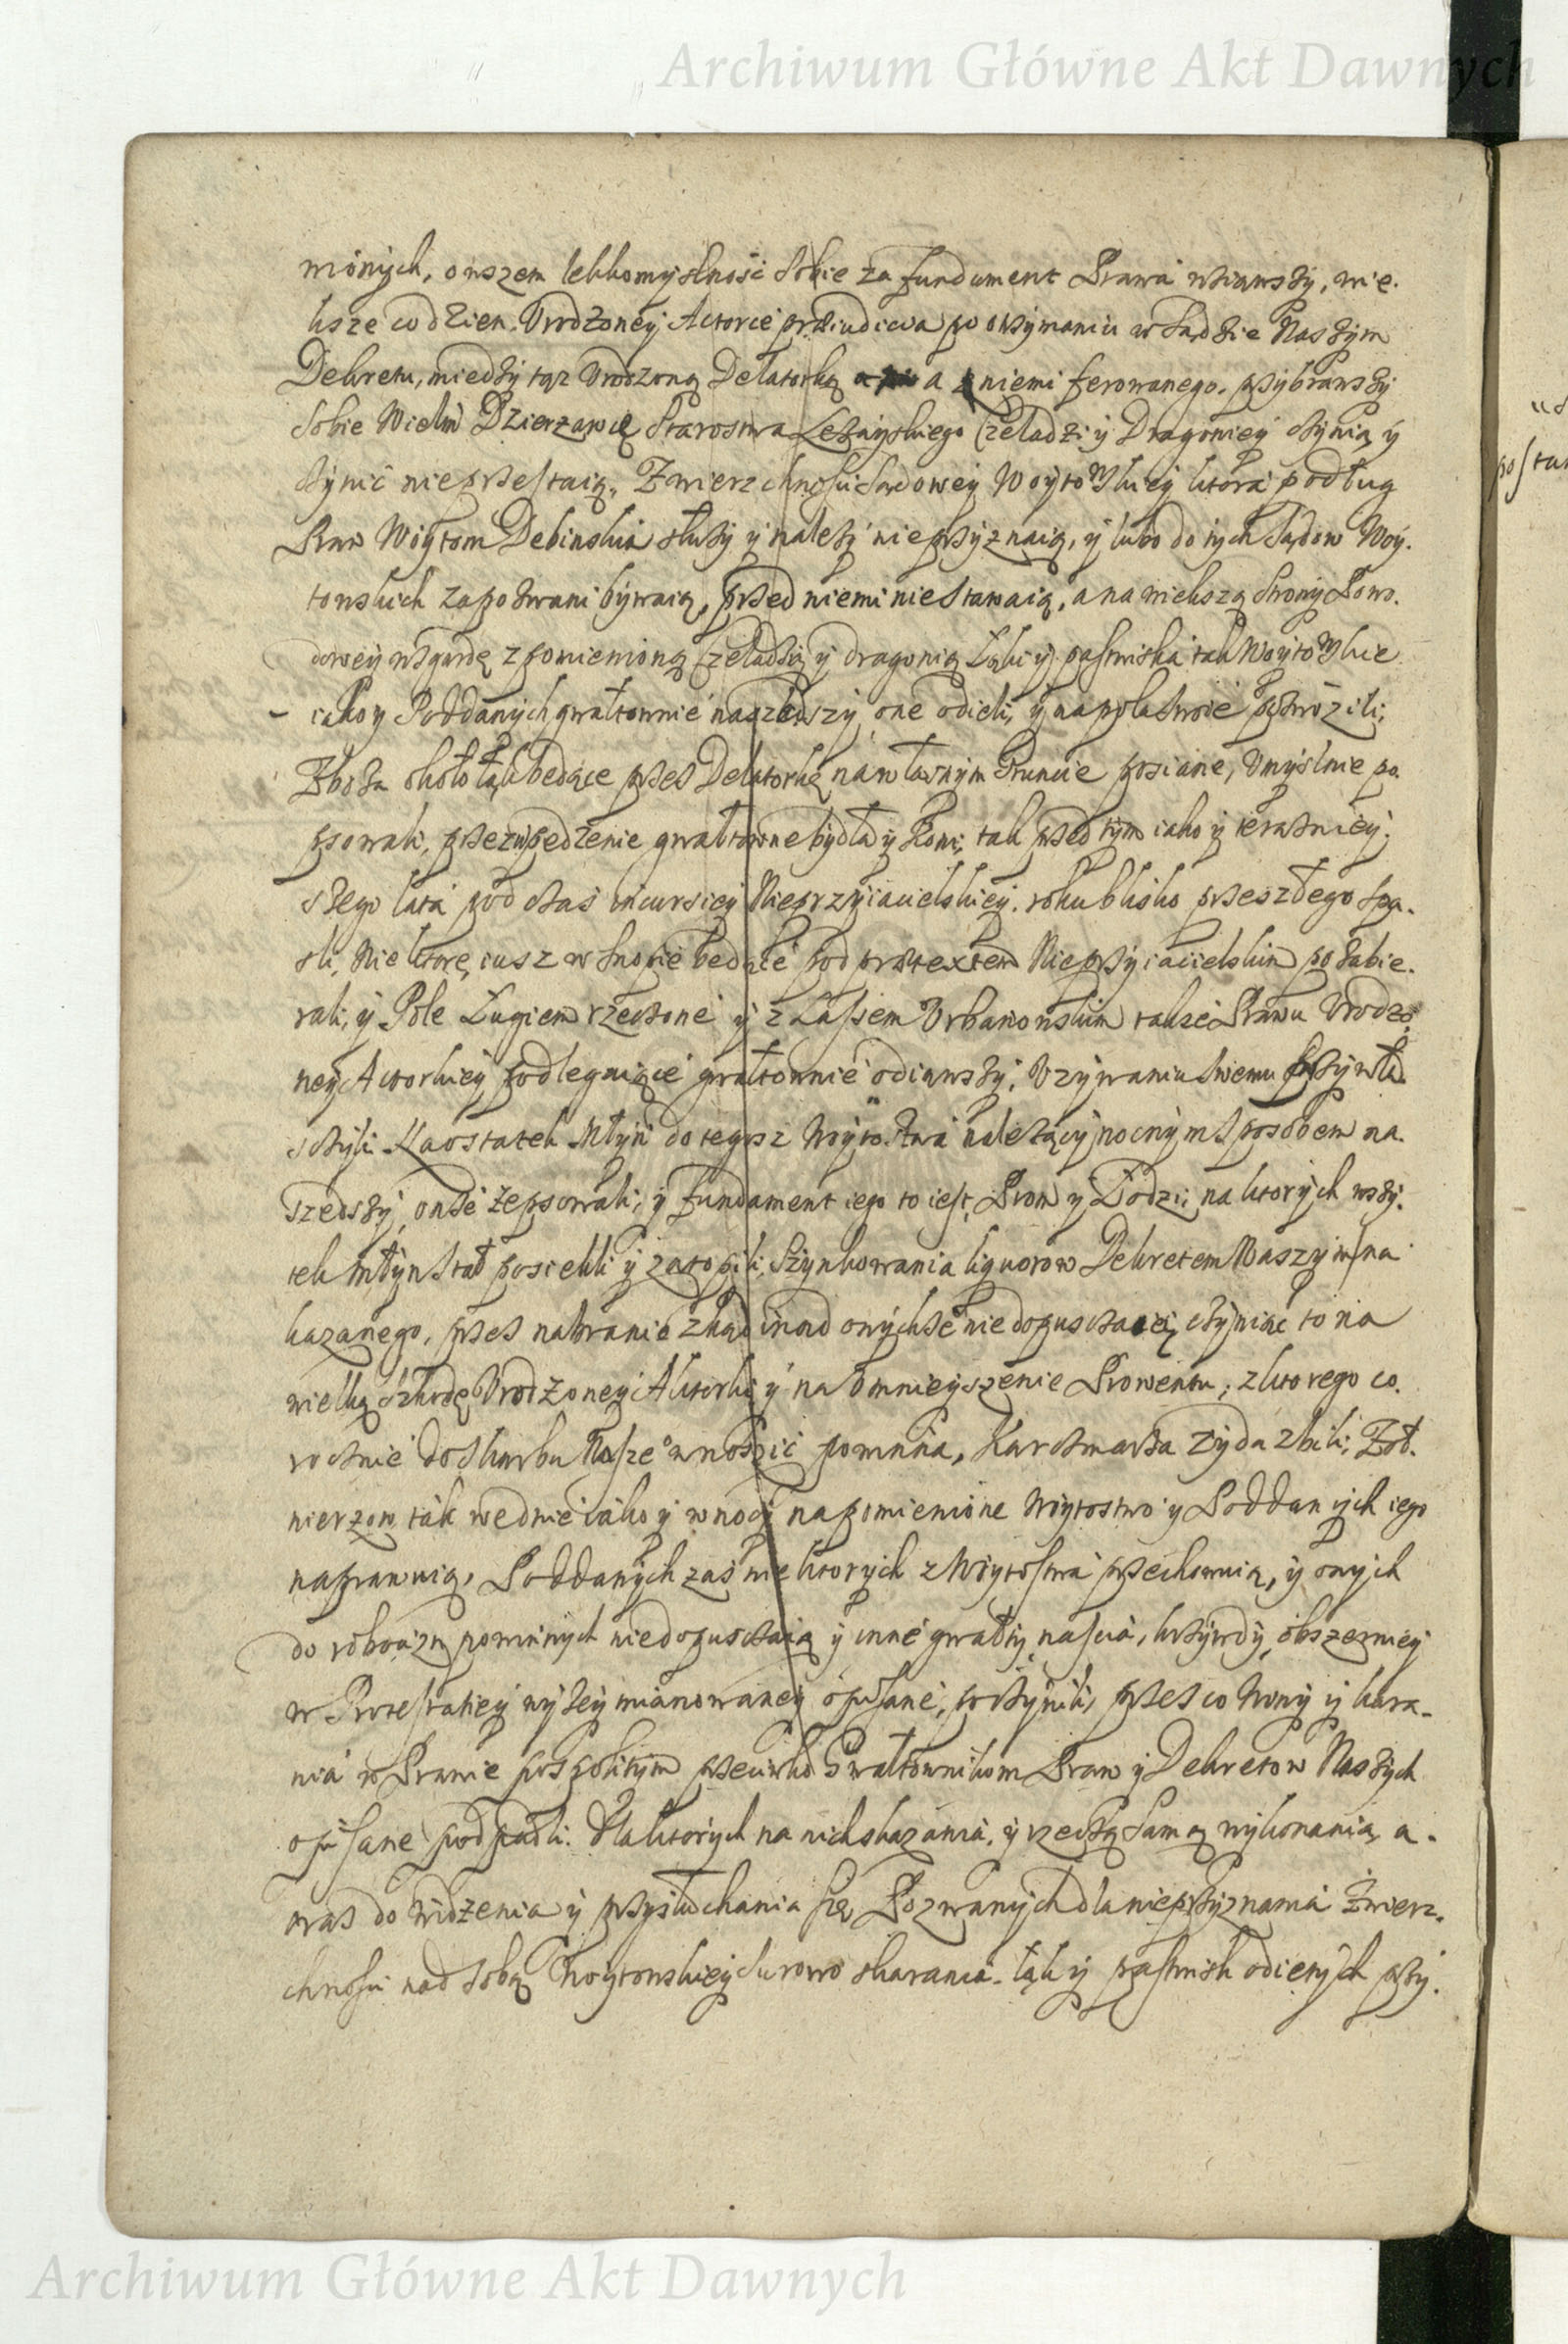 Archiwum Główne Akt Dawnych
mionych, owszem lekkomyslność sobie za fundament Prawa wziąwszy, wię.
ksze co dzien Vrodzoney Actorce præiudicia po otrzymaniu w Sądzie Naszym
Dekretu, miedzy tąż Vrodzoną Delatorką a niemi ferowanego, przybrawszy
sobie Dzierzawcę Starostwa Leżayskiego Czeladzi y Dragoniey czynią y
czynić nieprzestaią, Zwierzchnosci Sądowey Woytowskiey ktora podług
Praw Woytom Debinskim służy y należy nieprzyznaią, y lubo do tych Sądow Woy.
towskich zapozwani bywaią, przed niemi niestawaią, a na wiekszą strony Powo.
dowey wzgardę z pomienioną Czeladzią y dragonią Łąki y pastwiska tak Woytowskie
iako y Poddanych gwałtownie naszedszy one odieli, y na pola swoie obrocili,
Zboża około łąk bedące przez Delatorkę na własnym Gruncie posiane, Vmyslnie po
psowali, przez wpędzenie gwałtowne bydła y koni, tak przed tym iako y terazniey.
szego lata pod czas incursiey Nieprzyiacielskiey roku blisko przeszłego spa.
sli, Niektore iusz w snopie bedące pod prætextem Nieprzyiacielskim pozabie.
rali, y Pole Ługiem rzeczone y z Lasem Vrbanowskim także Prawu Vrodzo.
ney Actorkiey podlegaiące gwałtownie odiąwszy, Vzywaniu swemu przywła
sczyli. Naostatek Młyn do tegosz Woytostwa należący nocnym sposobem na.
szedszy, onże zepsowali, y fundament iego to iest, Prom y Łodzi, na ktorych wszy.
tek młyn stał posiekli y zatopili, Szynkowania liquorow Dekretem Naszym na
kazanego, przez nabranie zkąd inąd onychże niedopusczaią, czyniąc to na
wielką szkodę Vrodzoney Aktorki y na Vmnieyszenie Prowentu, z ktorego co.
rocznie do Skarbu Nasze° wnosić powinna, Karczmarza Zyda zbili, Żoł.
nierzow tak wednie iako y w nocy na pomienione Woytostwo y Poddanych iego
naprawuią, Poddanych zaś niektorych z Woytostwa przechowuią, y onych
do robocizn powinnych niedopusczaią y inne gwałty, naścia, krzywdy, obszerniey
w Protestatiey wyżey mianowaney opisane, poczynili, przez co winy y kara.
nia w Prawie pospolitym przeciwko Gwałtownikom Praw y Dekretow Naszych
opisane podpadli. Dla ktorych na nich skazania, y rzeczą samą wykonania, a.
oraz do widzenia y przysłuchania się Pozwanych dla nieprzyznania Zwierz.
chnosci nad sobą Woytowskiey surowo skarania. łąk y pastwisk odiętych przy.
Archiwum Główne Akt Dawnych